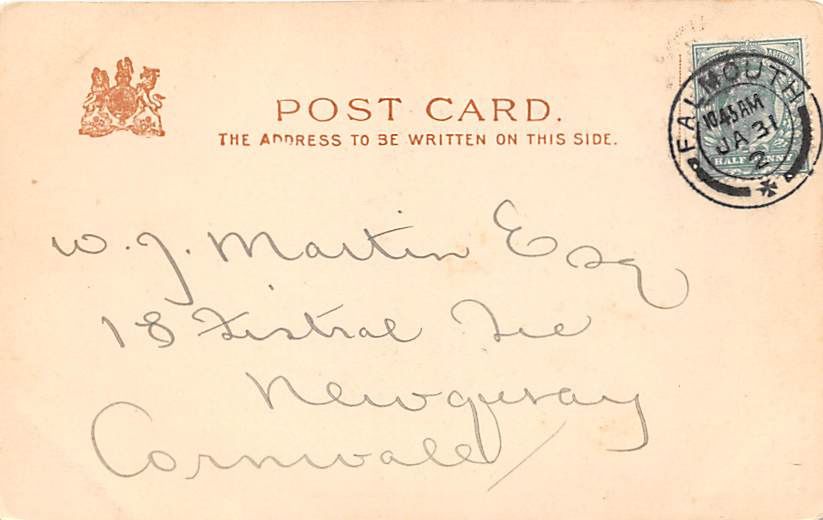 POST CARD.
THE ADDRESS TO BE WRITTEN ON THIS SIDE.
FALMOUTH
10.45 AM
JA 31
2
HALF PENNY
W. J. Martin Esq
18 Fistral
Newquay
Cornwall